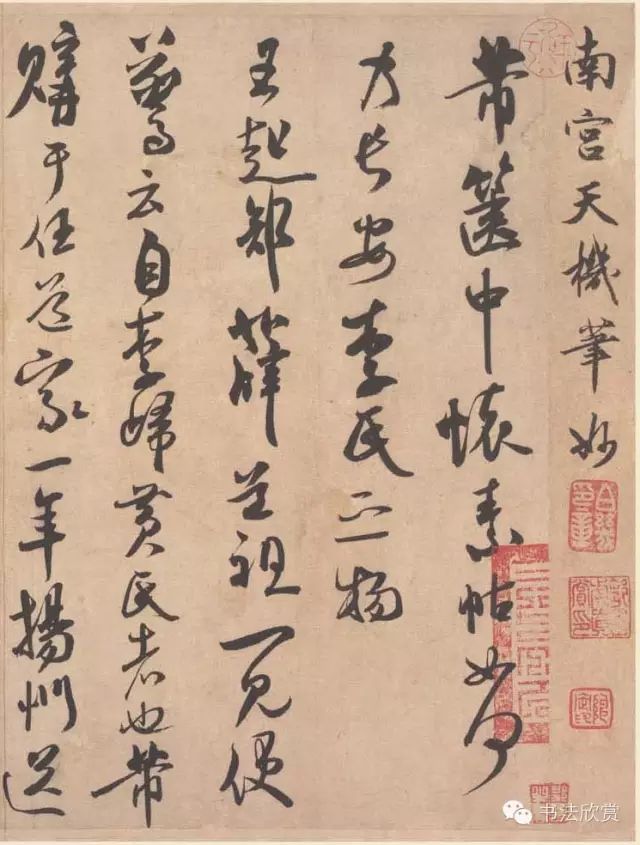 南宮天機筆妙
芾篋中懷素帖如何
乃長安李氏之物
王起部薛道祖一見便
驚云自李歸黃氏者也芾
購于任道家一年揚州送
书法欣赏